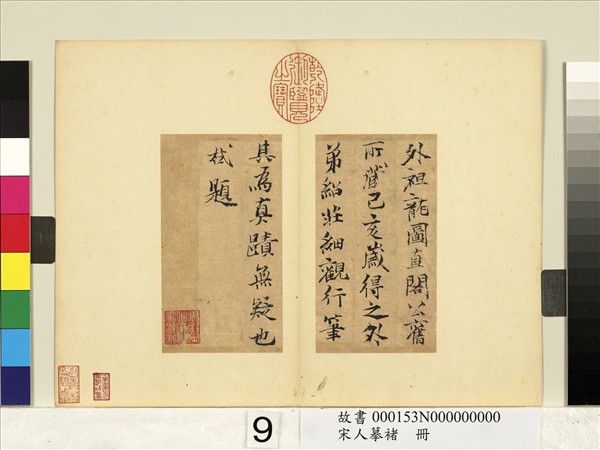 乾隆御覽之寶
外祖龍圖直閣公舊
所藏己亥歲得之外
弟紹莊細觀行筆
其為真蹟無疑也
栻題
9
故書 000153N000000000
宋人摹褚 冊